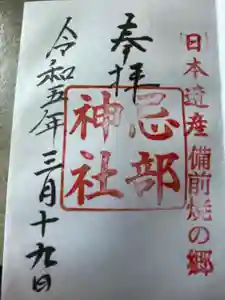 日本遺産 備前焼の郷
奉拝
忌部
神社
令和五年 三月十九日